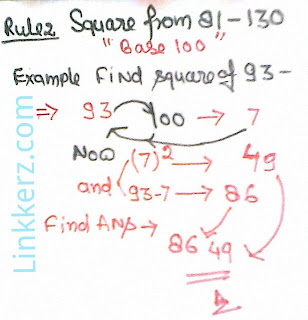 Rule2 Square from 81-130
"Base 100"
Example Find square of 93-
⇒ 93 100 → 7
Now (7)² → 49
and 93-7 → 86
Find Ans → 86 49
Linkkerz.com